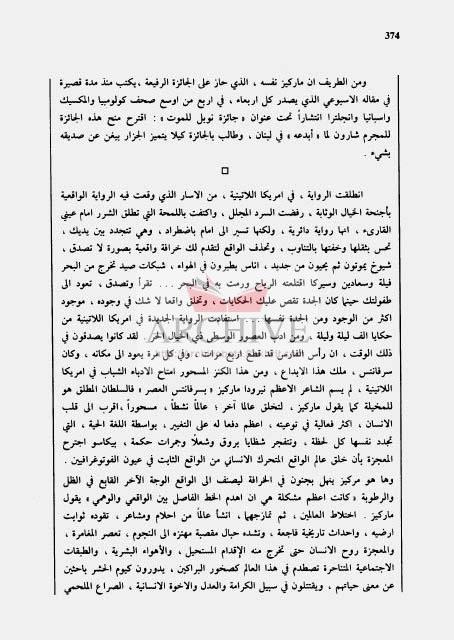 374
ومن الطريف ان ماركيز نفسه ، الذي حاز على الجائزة الرفيعة ، يكتب منذ مدة قصيرة
في مقاله الاسبوعي الذي يصدر كل اربعاء ، في اربع من اوسع صحف كولومبيا والمكسيك
واسبانيا وانجلترا انتشاراً تحت عنوان «جائزة نوبل للموت» : اقترح منح هذه الجائزة
للمجرم شارون لما «أبدعه» في لبنان ، وطالب بالجائزة كيلا يتميز الجزار بيغن عن صديقه
بشيء .
انطلقت الرواية ، في امريكا اللاتينية ، من الاسار الذي وقعت فيه الرواية الواقعية
بأجنحة الخيال الوثابة ، رفضت السرد المجلل ، واكتفت باللمحة التي تطلق الشرر امام عيني
القارىء ، انها رواية دائرية ، ولكنها تسير الى امام باضطراد ، وهي تتجدد بين يديك ،
تحس بثقلها وخفتها بالتناوب ، وتحذف الواقع لتقدم لك خرافة واقعية بصورة لا تصدق ،
شيوخ يموتون ثم يحيون من جديد ، اناس يطيرون في الهواء ، شبكات صيد تخرج من البحر
فيلة وسعادين وسيركا اقتلعته الرياح ورمت به في البحر ... تقرأ وتصدق ، تعود الى
طفولتك حينما كان الجدة تقص عليك الحكايات ، وتخلق واقعا لا شك في وجوده ، موجود
اكثر من الوجود ومن الجدة نفسها .... استفادت الرواية الجديدة في امريكا اللاتينية من
حكايا الف ليلة وليلة ، ومن ادب العصور الوسطى ذي الخيال الحر . لقد كانوا يصدقون في
ذلك الوقت ، ان رأس الفارس قد قطع اربع مرات ، وفي كل مرة يعود الى مكانه ، وكان
سرفانتس ، ملك هذا الابداع ، ومن هذا الكنز المسحور امتاح الادباء الشباب في امريكا
اللاتينية ، لم يسم الشاعر الاعظم نيرودا ماركيز «بسرفانتس العصر» فالسلطان المطلق هو
للمخيلة كما يقول ماركيز ، لتخلق عالما آخر ؛ عالماً نشطاً ، مسحوراً ، اقرب الى قلب
الانسان ، اكثر فعالية في توعيته ، اعظم دفعا له على التغيير ، بواسطة اللغة الحية ، التي
تجدد نفسها كل لحظة ، وتتفجر شظايا بروق وشعلًا وجمرات حكمة ، بيكاسو اجترح
المعجزة بأن خلق عالم الواقع المتحرك الانساني من الواقع الثابت في عيون الفوتوغرافيين .
وها هو مركيز ينهل بجنون في الخرافة ليصنف الى الواقع الوجة الآخر القابع في الظل
والرطوبة «كانت اعظم مشكلة هي ان اهدم الخط الفاصل بين الواقعي والوهمي» يقول
ماركيز . اختلاط العالمين ، ثم تمازجهما ، انشأ عالماً من احلام ومشاعر ، تقوده ثوابت
ارضية ، واحداث تاريخية فاجعة ، وتشده حبال مقصبة مهتزه الى النجوم ، تعصر المغامرة ،
والمعجزة روح الانسان حتى تخرج منه الإقدام المستحيل ، والأهواء البشرية ، والطبقات
الاجتماعية المتناحرة تصطدم في هذا العالم كصخور البراكين ، يدورون كيوم الحشر باحثين
عن معنى حياتهم ، ويقتتلون في سبيل الكرامة والعدل والاخوة الانسانية ، الصراع الملحمي
ARCHIVE